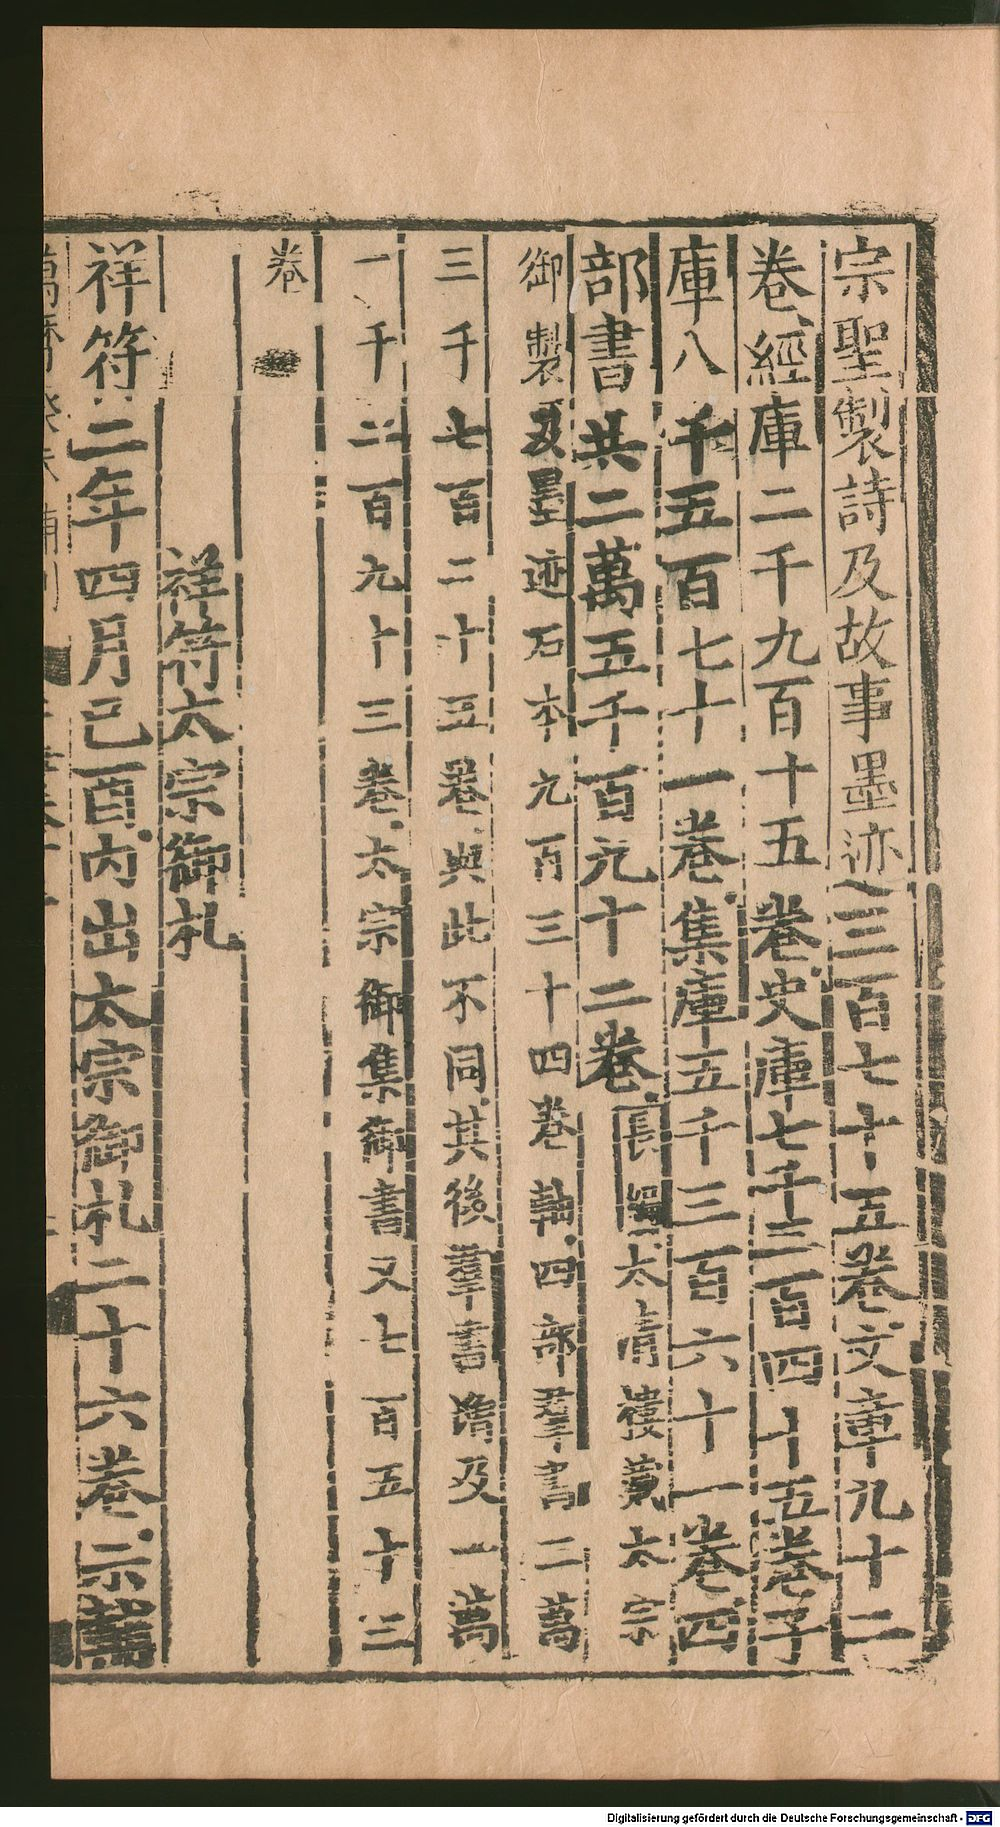 宗聖製詩及故事墨迹三百七十五卷文章九十二
卷經庫二千九百十五卷史庫七千三百四十五卷子
庫八千五百七十一卷集庫五千三百六十一卷四
部書共二萬五千百九十二卷長編太清樓藏太宗
御製及墨迹石本九百三十四卷軸四部羣書二萬
三千七百二十五卷與此不同其後羣書增及一萬
一千二百九十三卷太宗御集御書又七百五十三
卷
祥符太宗御札
祥符二年四月己酉內出太宗御札二十六卷示輔
Digitalisierung gefördert durch die Deutsche Forschungsgemeinschaft - DFG